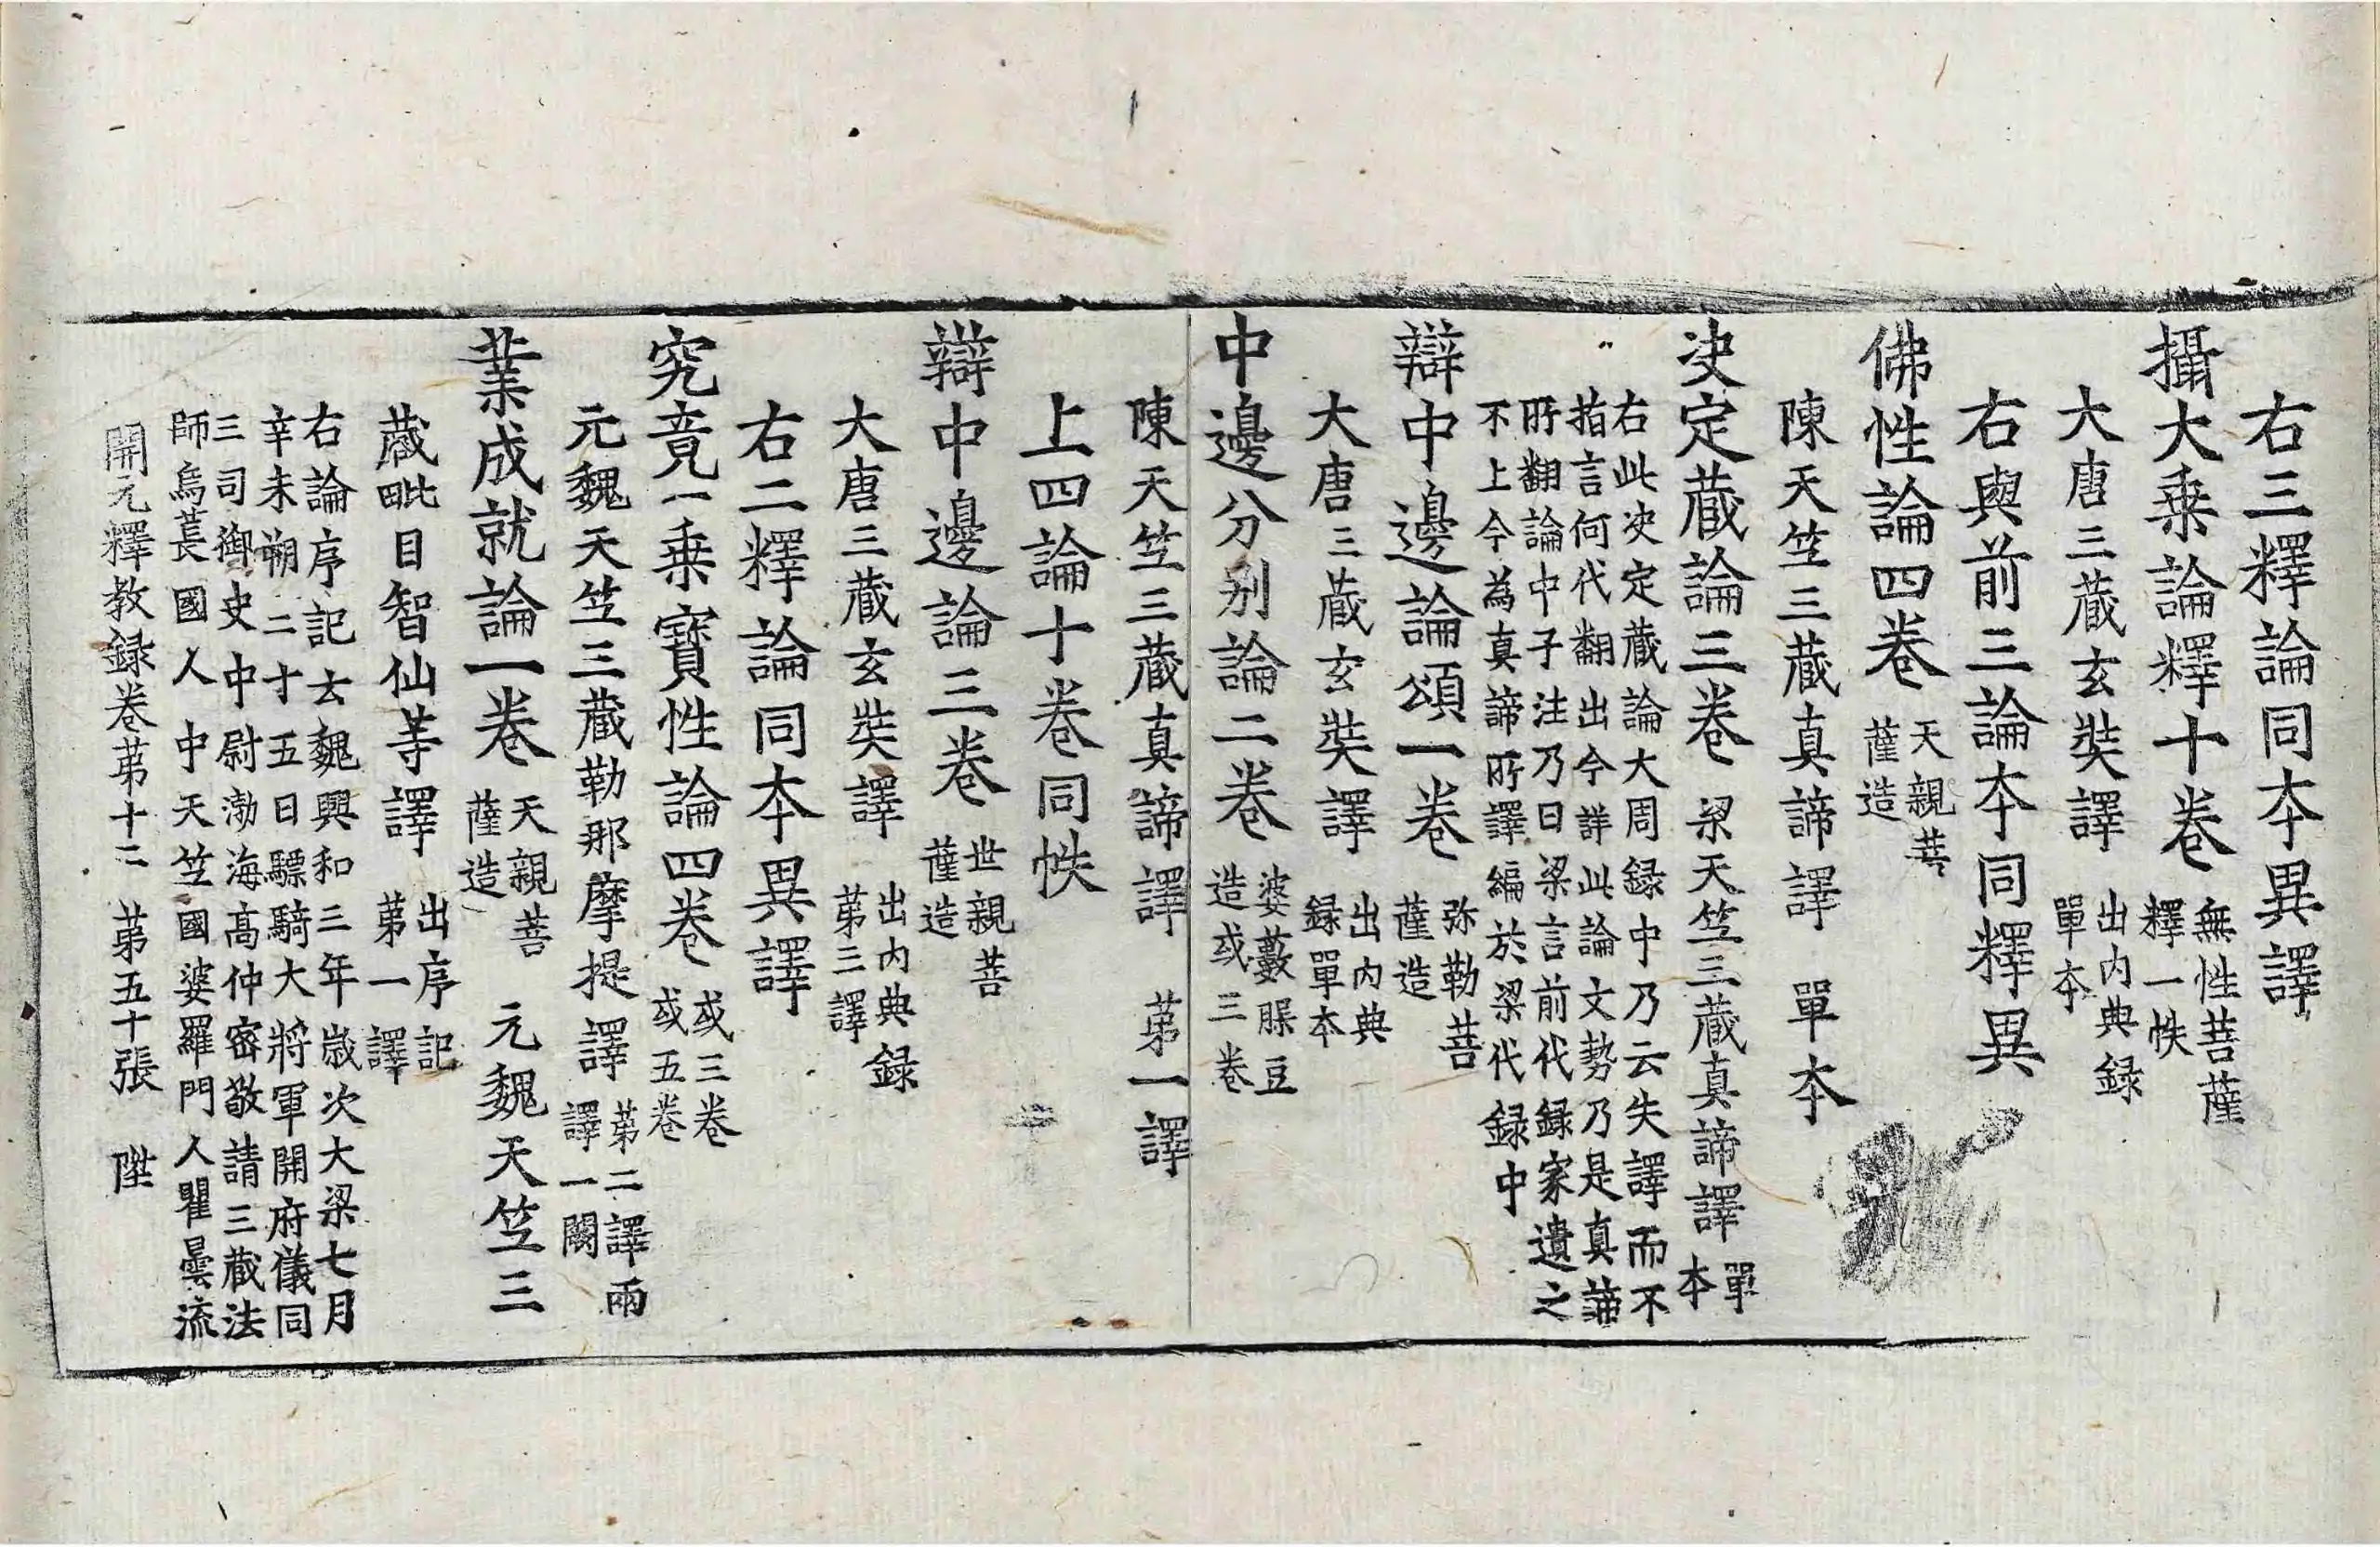 右三釋論同本異譯
攝大乗論釋十卷 無性菩薩釋一帙
大唐三蔵玄奘譯 出内典録單本
右與前三論本同釋異
佛性論四卷 天親菩薩造
陳天竺三蔵真諦譯 單本
決定蔵論三卷 梁天竺三蔵真諦譯 單本
右此決定蔵論大周録中乃云失譯而不
指言何代翻出今詳此論文勢乃是真諦
所翻論中子注乃曰梁言前代録家遺之
不上今為真諦所譯編於梁代録中
辯中邊論頌一卷 弥勒菩薩造
大唐三蔵玄奘譯 出内典録單本
中邊分别論二卷 婆藪睺豆造或三卷
陳天竺三蔵真諦譯 第一譯
上四論十卷同帙
辯中邊論三卷 世親菩薩造
大唐三蔵玄奘譯 出内典録第三譯
右二釋論同本異譯
究竟一乗寶性論四卷 或三卷或五卷
元魏天竺三蔵勒那摩提譯 第二譯兩譯一闕
業成就論一卷 天親菩薩造 元魏天竺三
蔵毗目智仙等譯 出序記第一譯
右論序記云魏興和三年歳次大梁七月
辛未朔二十五日驃騎大將軍開府儀同
三司御史中尉渤海髙仲密敬請三蔵法
師烏萇國人中天竺國婆羅門人瞿曇流
開元釋教録卷第十二 第五十張 陞